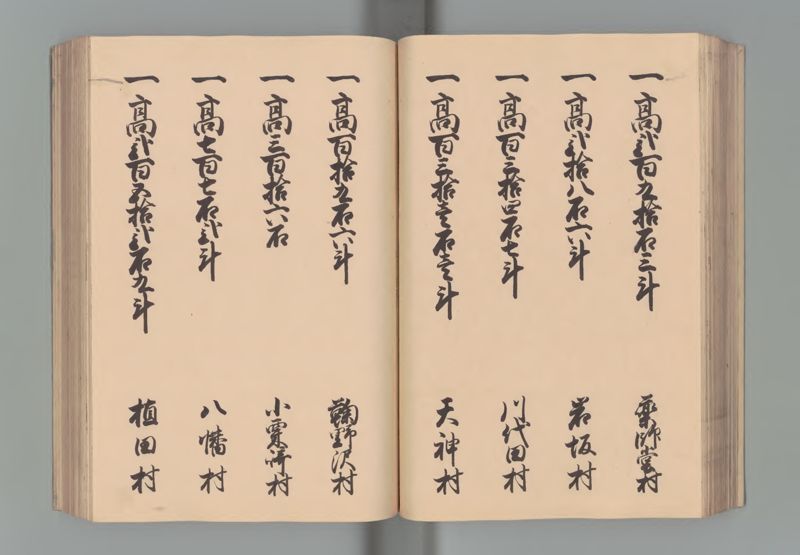 一高弐百九拾石三斗 薬師堂村
一高弐拾八石六斗 岩坂村
一高百三拾四石七斗 川代田村
一高百三拾壱石壱斗 天神村
一高百拾九石六斗 鞠野沢村
一高三百拾六石 小粟崎村
一高七百七石弐斗 八幡村
一高弐百五拾弐石九斗 植田村